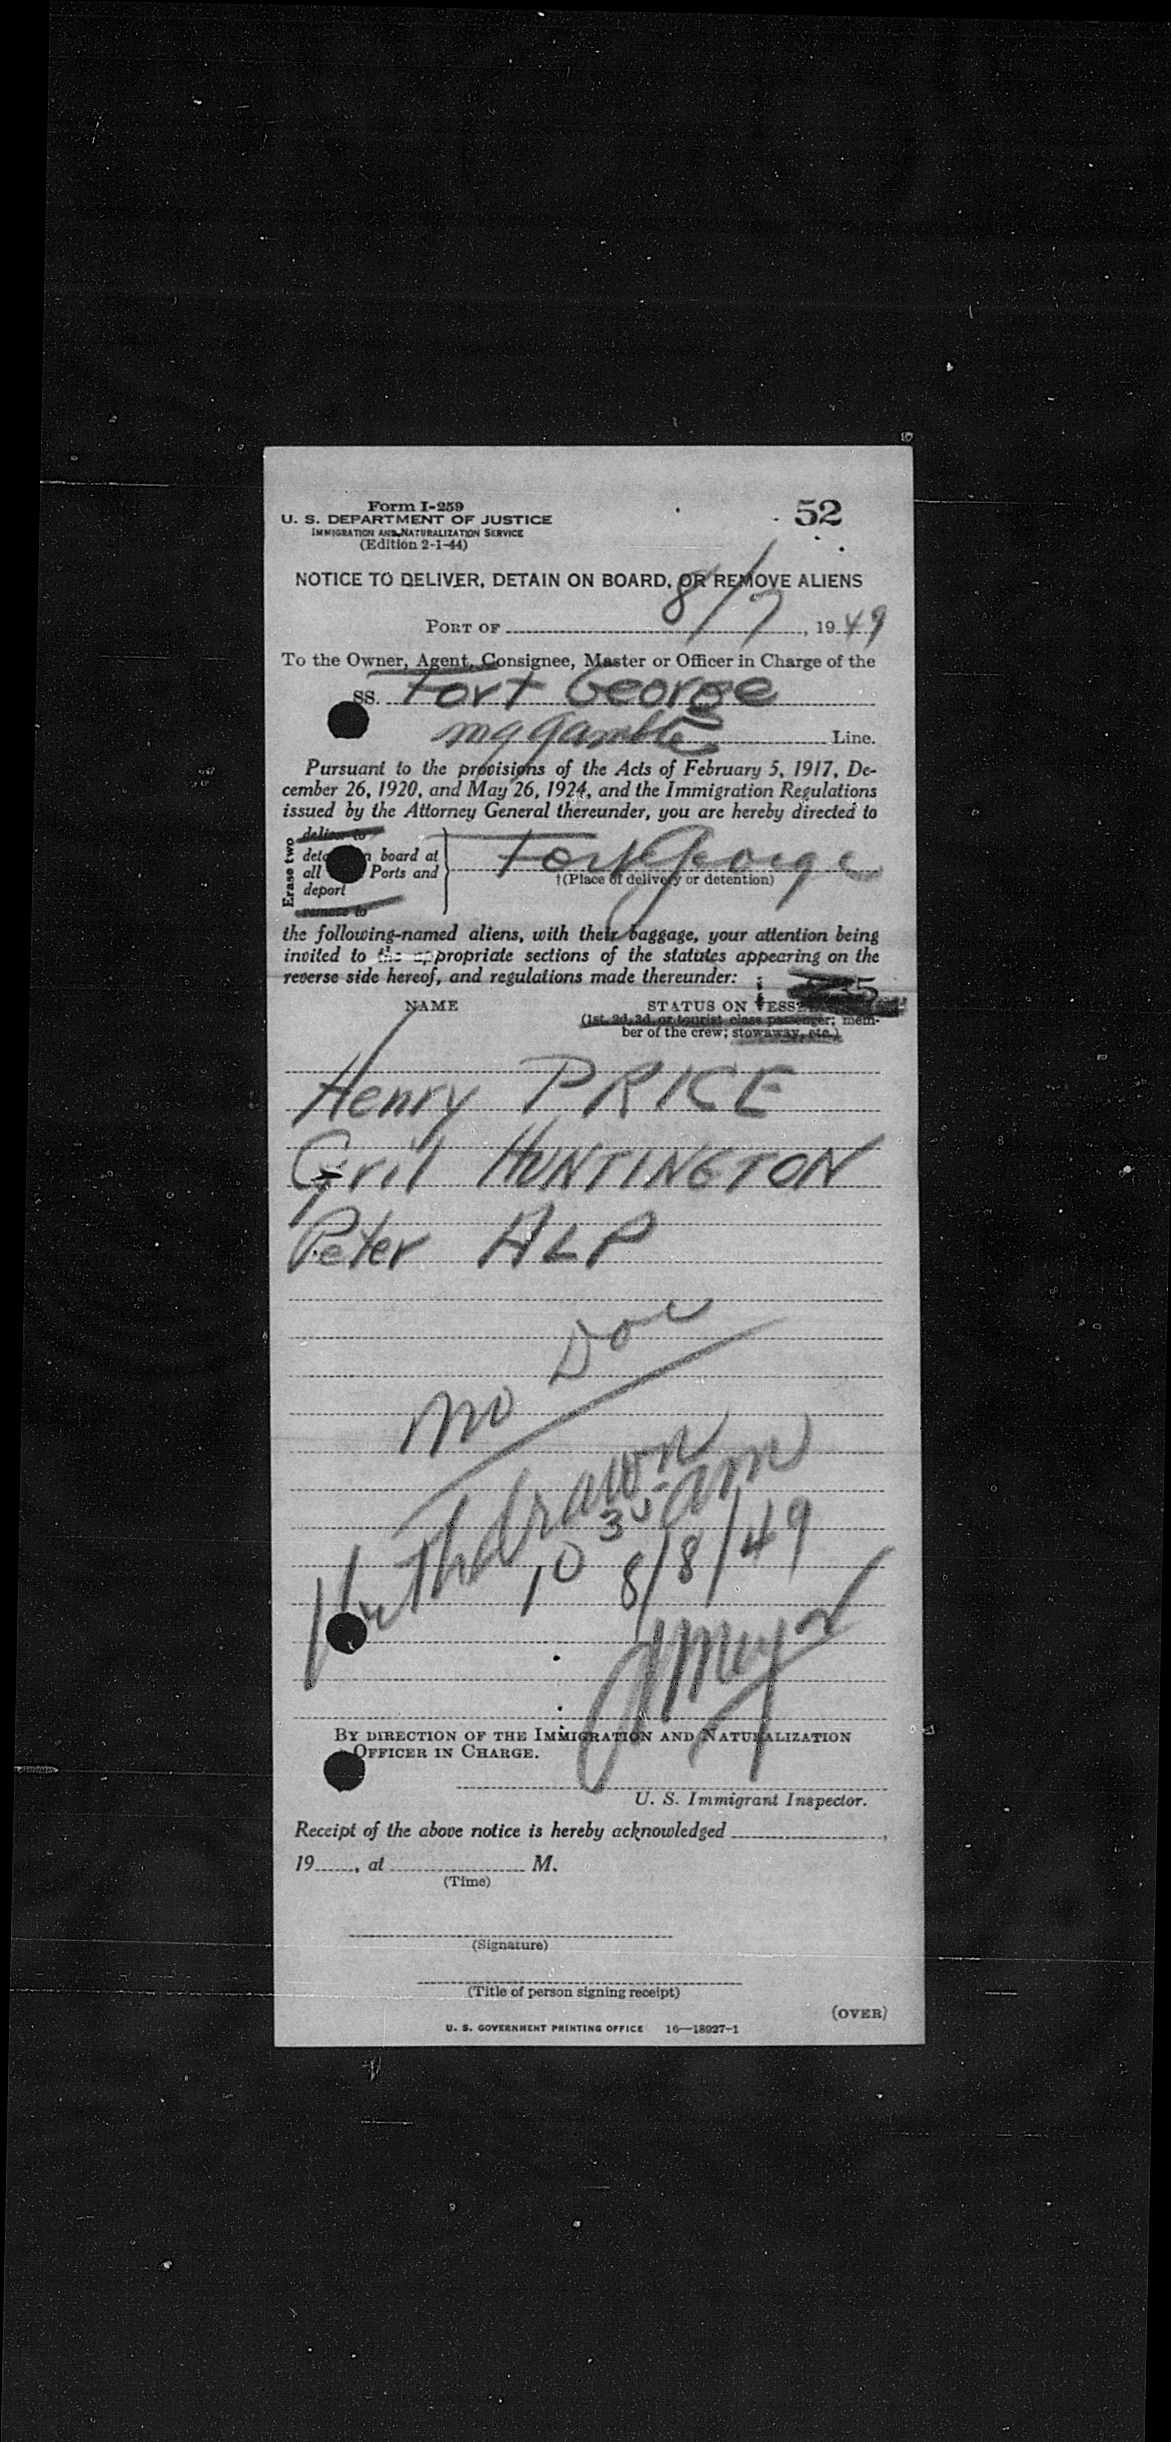 Form I-259
52
U. S. DEPARTMENT OF JUSTICE
IMMIGRATION AND NATURALIZATION SERVICE
(Edition 2-1-44)
NOTICE TO DELIVER, DETAIN ON BOARD, OR REMOVE ALIENS
PORT OF 8/7, 1949
To the Owner, Agent, Consignee, Master or Officer in Charge of the
SS. Fort George
Line.
Pursuant to the provisions of the Acts of February 5, 1917, De-
cember 26, 1920, and May 26, 1924, and the Immigration Regulations
issued by the Attorney General thereunder, you are hereby directed to
Erase two
deliver to
board at
all Ports and
deport
remove to
Fort George
†(Place of delivery or detention)
the following-named aliens, with their baggage, your attention being
invited to the appropriate sections of the statutes appearing on the
reverse side hereof, and regulations made thereunder:
NAME
STATUS ON
(1st, 2d, 3d, or tourist class passenger; mem-
ber of the crew; stowaway, etc.)
Henry PRICE
Cyril HUNTINGTON
Peter ALP
no Doc
Withdrawn
10 30 am
8/8/49
BY DIRECTION OF THE IMMIGRATION AND NATURALIZATION
OFFICER IN CHARGE.
U. S. Immigrant Inspector.
Receipt of the above notice is hereby acknowledged
19, at M.
(Time)
(Signature)
(Title of person signing receipt)
(OVER)
U. S. GOVERNMENT PRINTING OFFICE 16—18927-1